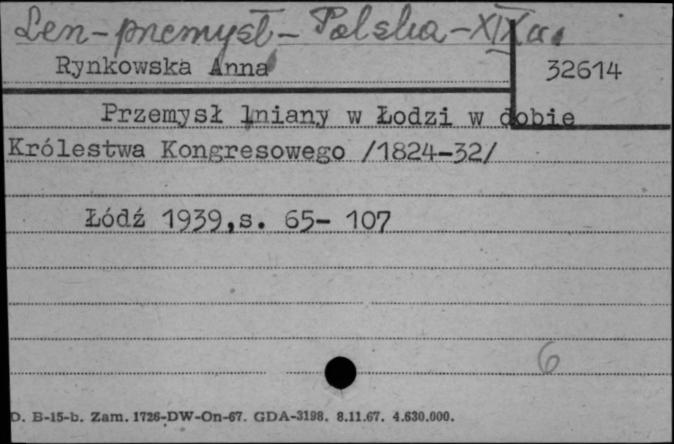 Len - przemysł - Polska - XIX w.
Rynkowska Anna
32614
Przemysł lniany w Łodzi w dobie
Królestwa Kongresowego /1824-32/
Łódź 1939,s. 65- 107
6
D. B-15-b. Zam. 1726-DW-On-67. GDA-3198. 8.11.67. 4.630.000.